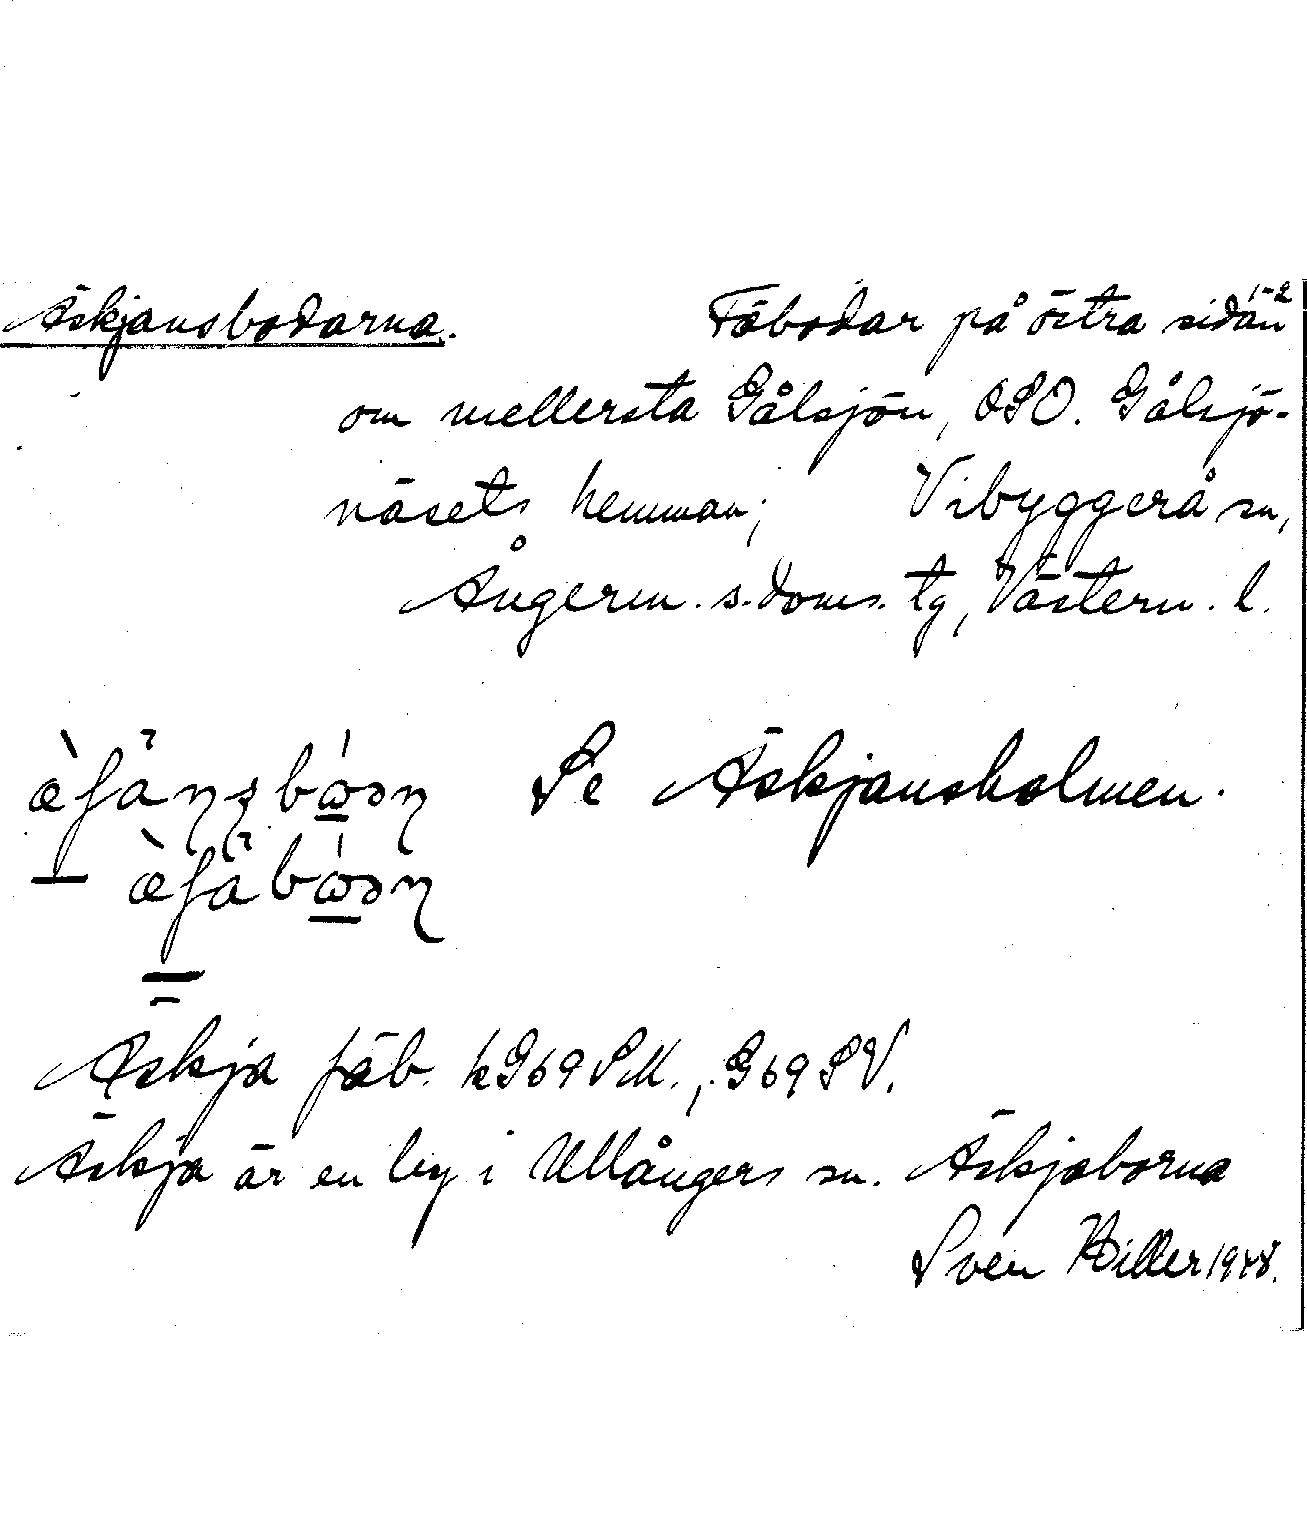 Äskjansbodarna. Fäbodar på östra sidan 1-2
om mellersta Gålsjön, OSO. Gålsjö-
näsets hemman; Vibyggerå sn,
Ångerm. s. doms. tg, Västern. l.
Se Äskjansholmen.
Äskja fäb. k G69SM., G69SV.
Äskja är en by i Ullångers sn. Äskjaborna
Sven Hiller 1948.